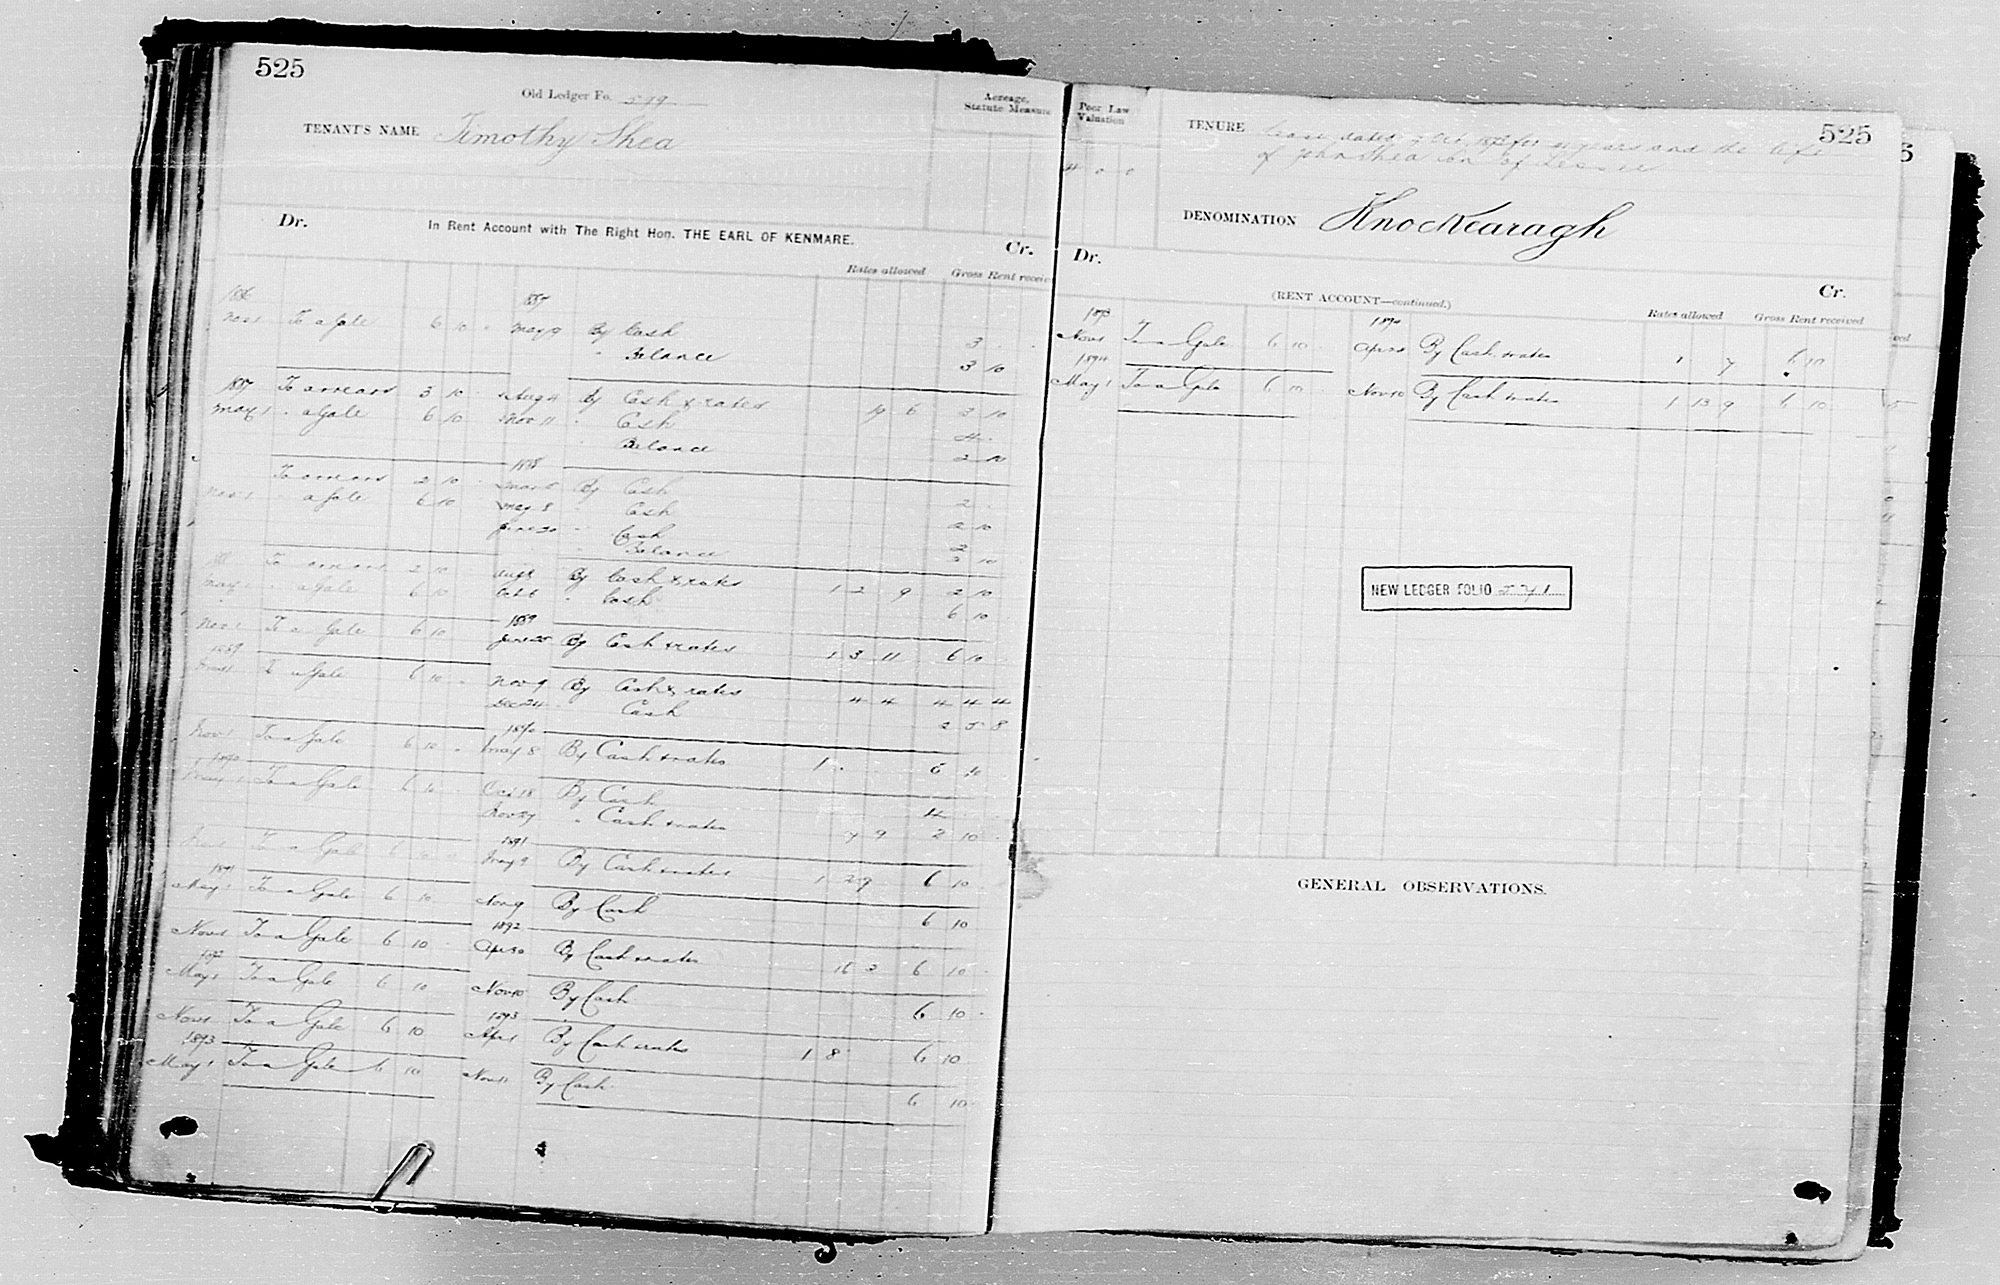 525
Old Ledger Fo. 599
Acreage,
Statute Measure
TENANT'S NAME Timothy Shea
Dr. In Rent Account with The Right Hon. THE EARL OF KENMARE. Cr.
Rates allowed Gross Rent receiv
1887
Nov 1 To a Gale 6 10 May 9 By Cash 3
" Balance 3 10
1887 To arrears 3 10 Aug 4 By Cash & rates 19 6 3 10
May 1 " a Gale 6 10 Nov 11 " Cash 4
Balance 2 10
1888
To arrears 2 10 By Cash 2
Nov 1 " a Gale 6 10 May 8 " Cash 2 10
June 30 " Cash 2
" Balance 2 10
To arrears 2 10 Aug 8 By Cash & rates 1 2 9 2 10
May 1 " a Gale 6 10 Oct 6 " Cash 6 10
1889
Nov 1 To a Gale 6 10 June 25 By Cash & rates 1 3 11 6 10
1889
May 1 To a Gale 6 10 Nov 9 By Cash & rates 4 4 4 4 4
Dec 24 Cash 2 5 8
1890
Nov 1 To a Gale 6 10 May 8 By Cash & rates 1 6 10
1890
May 1 To a Gale 6 10 Oct 18 By Cash 4
" Cash & rates 7 9 2 10
1891
Nov 1 To a Gale 6 10 May 9 By Cash & rates 1 2 9 6 10
1891
May 1 To a Gale 6 10 Nov 9 By Cash 6 10
1892
Nov 1 To a Gale 6 10 Apr 30 By Cash & rates 6 10
1892
May 1 To a Gale 6 10 Nov 10 By Cash 6 10
1893
Nov 1 To a Gale 6 10 Apr 1 By Cash & rates 1 8 6 10
1893
May 1 To a Gale 6 10 Nov 11 By Cash 6 10
Poor Law
Valuation
4 0 0
525
TENURE Lease dated 7 Oct years and the life
of John Shea son of Lessee
DENOMINATION Knockearagh
Dr. (RENT ACCOUNT—continued.) Cr.
Rates allowed Gross Rent received
1893 1894
Nov 1 To a Gale 6 10 By Cash & rates 1 7 6 10
1894
May 1 To a Gale 6 10 Nov 10 By Cash & rates 1 13 9 6 10
NEW LEDGER FOLIO 571
GENERAL OBSERVATIONS.